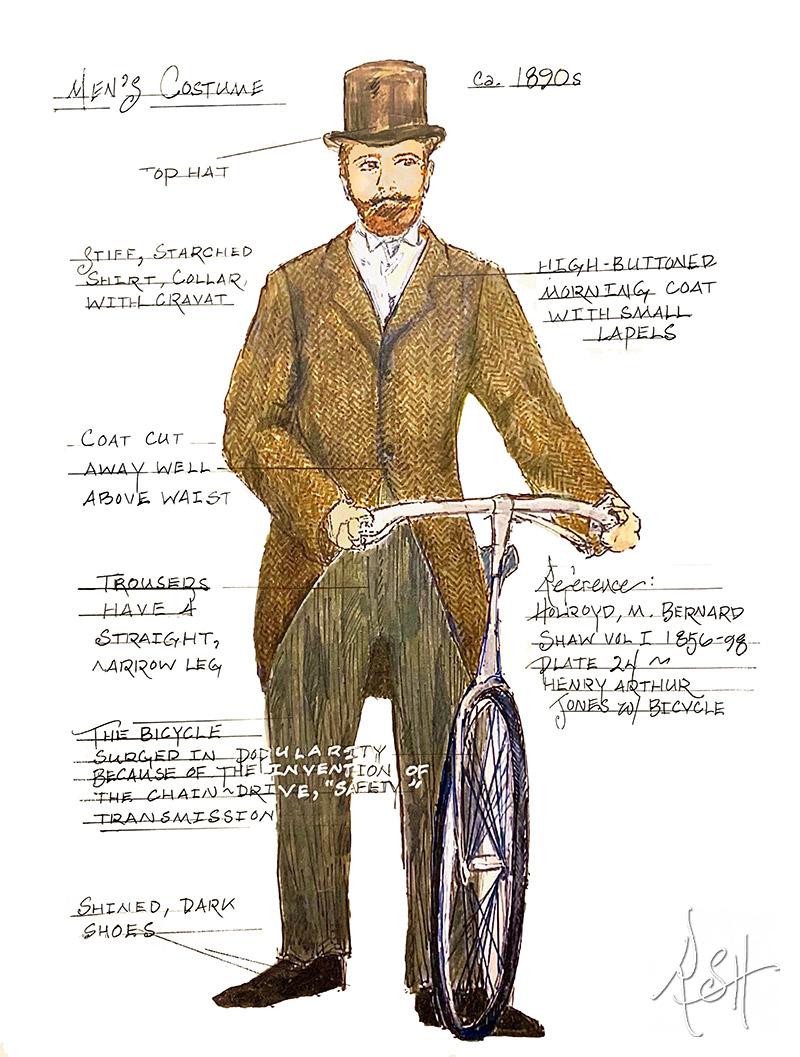 MEN'S COSTUME
ca. 1890s
TOP HAT
STIFF, STARCHED
SHIRT, COLLAR,
WITH CRAVAT
HIGH-BUTTONED
MORNING COAT
WITH SMALL
LAPELS
COAT CUT
AWAY WELL
ABOVE WAIST
TROUSERS
HAVE A
STRAIGHT,
NARROW LEG
Reference:
HOLROYD, M. BERNARD
SHAW VOL I 1856-98
PLATE 24 ~
HENRY ARTHUR
JONES W/ BICYCLE
THE BICYCLE
SURGED IN POPULARITY
BECAUSE OF THE INVENTION OF
THE CHAIN-DRIVE, "SAFETY"
TRANSMISSION
SHINED, DARK
SHOES
RSH